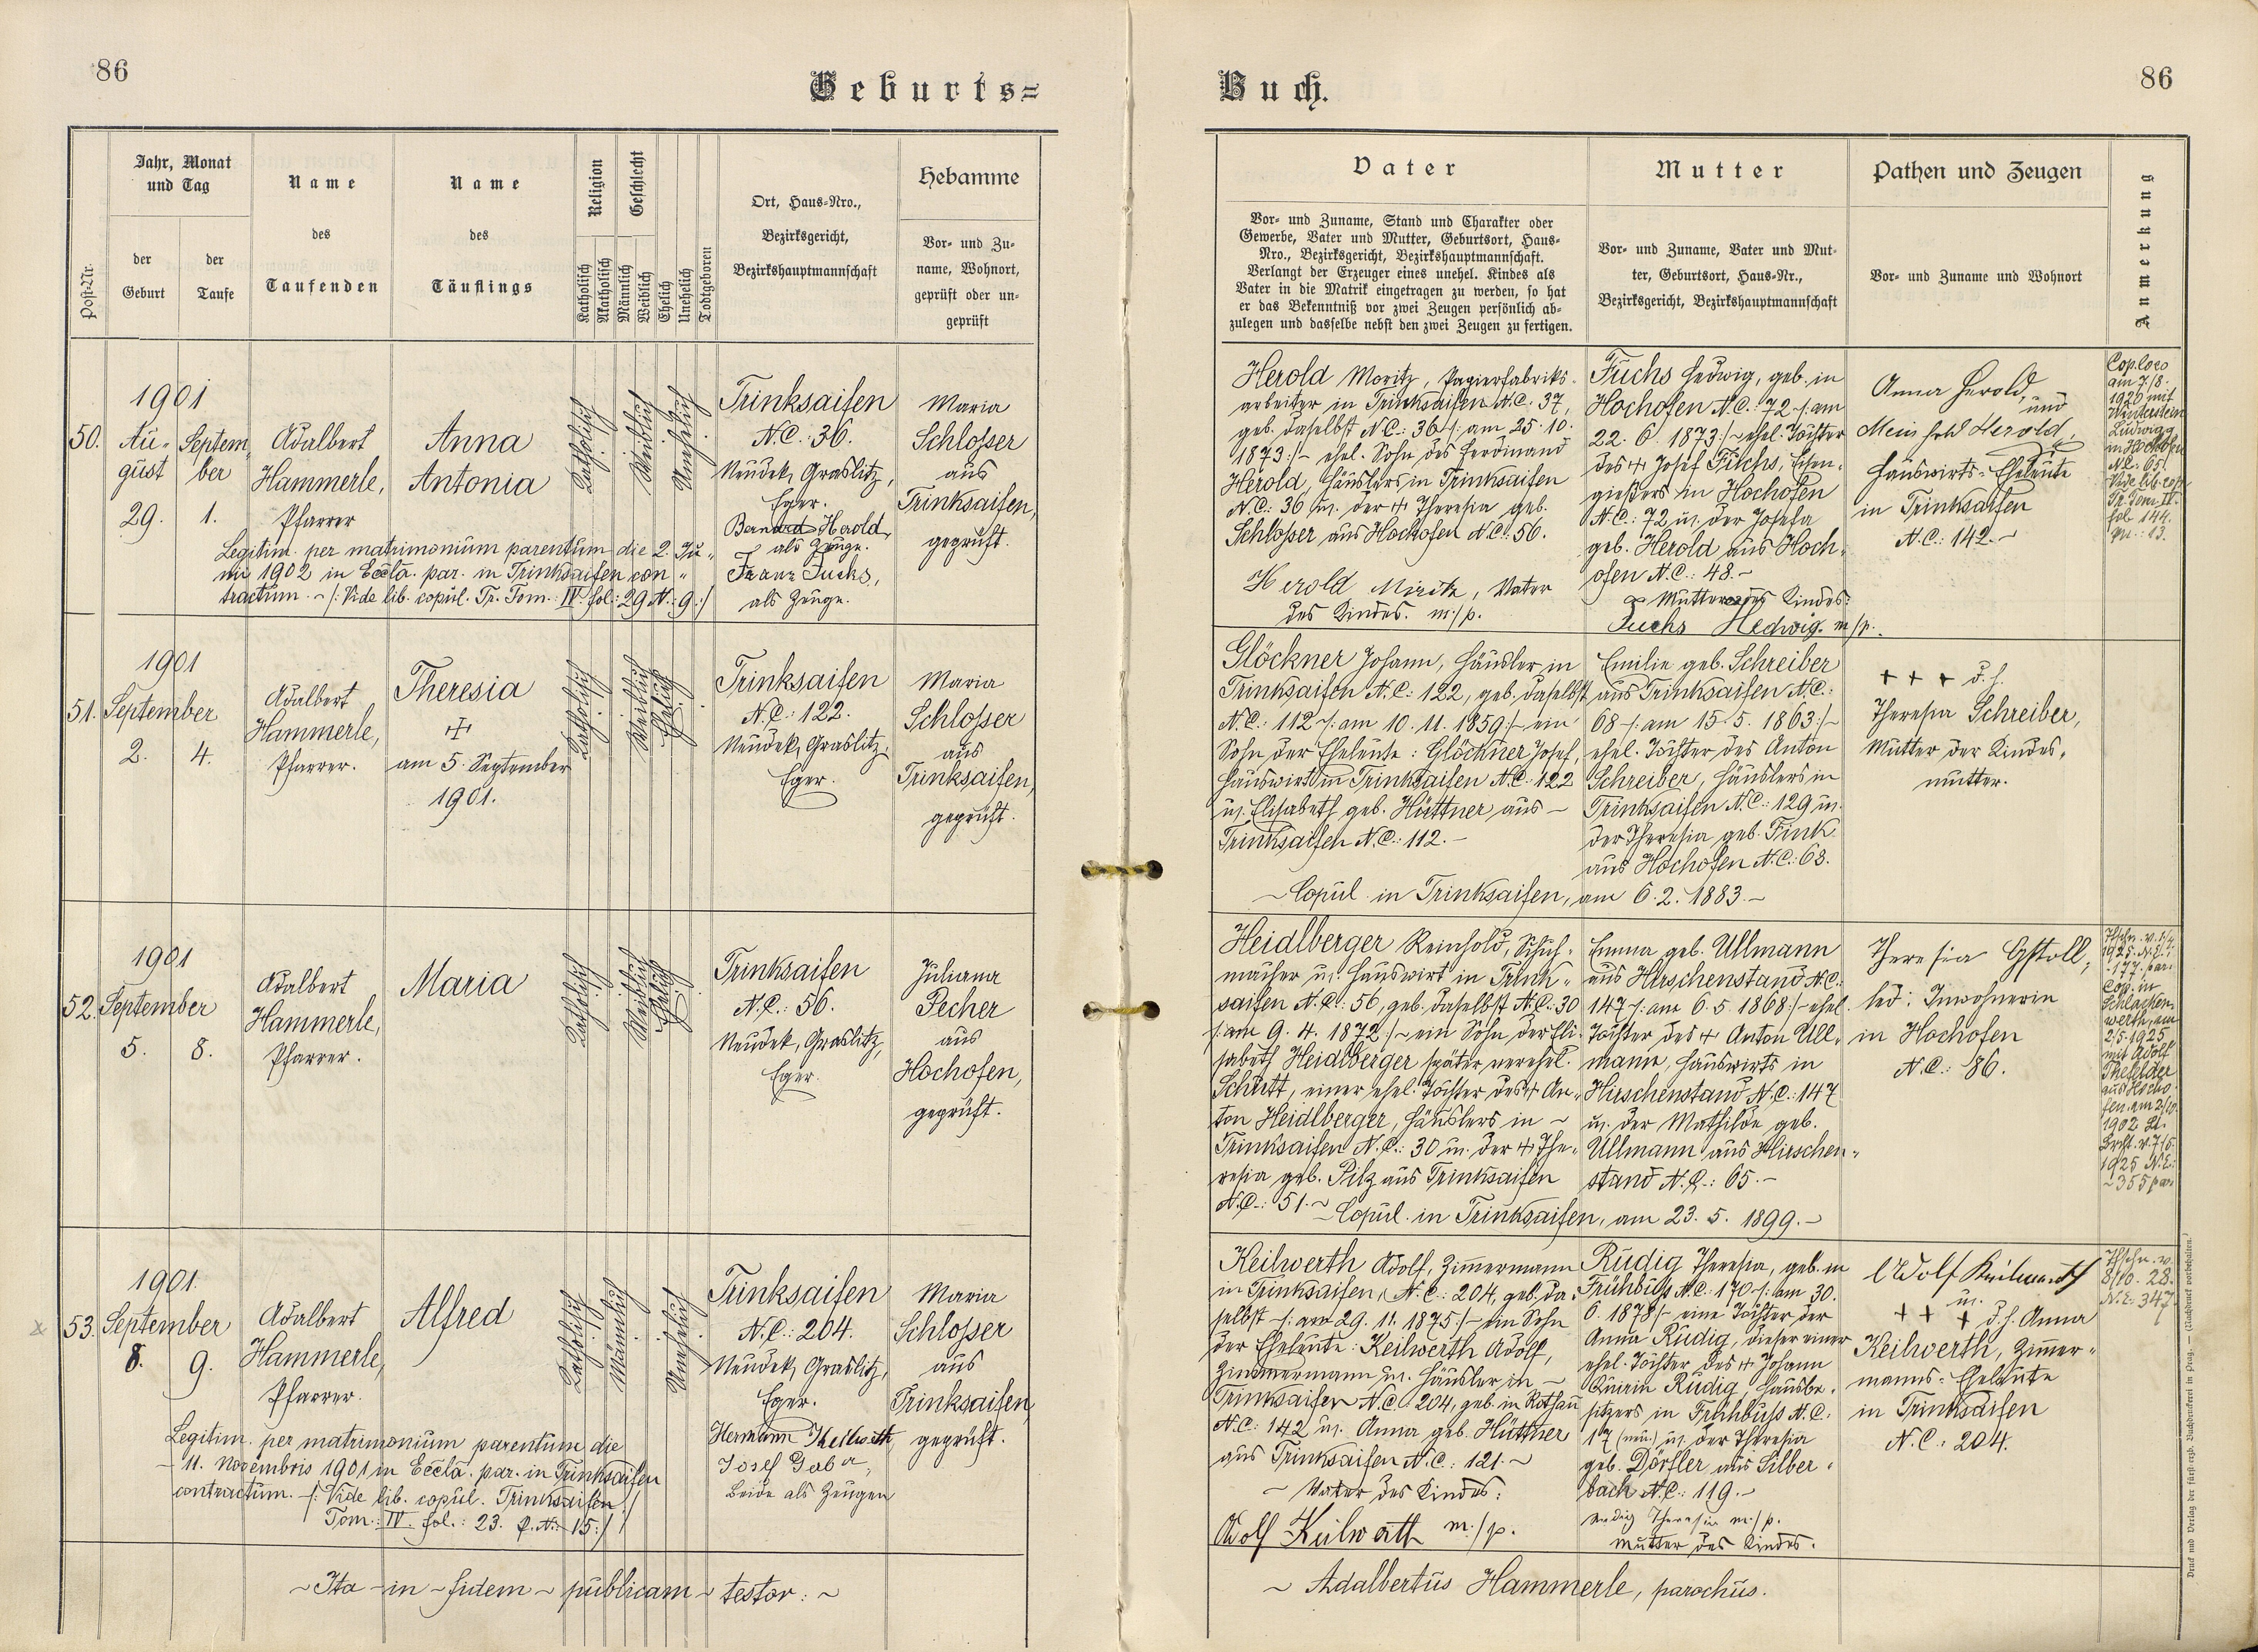 86
Geburts=
Jahr, Monat
und Tag
Post-Nr.
der
Geburt
der
Taufe
Name
des
Taufenden
Name
des
Täuflings
Religion
Katholisch
Akatholisch
Geschlecht
Männlich
Weiblich
Ehelich
Unehelich
Todtgeboren
Ort, Haus=Nro.,
Bezirksgericht,
Bezirkshauptmannschaft
Hebamme
Vor= und Zu=
name, Wohnort,
geprüft oder un=
geprüft
50.
1901
Au=
gust
29.
Septem
ber
1.
Adalbert
Hammerle,
Pfarrer
Anna
Antonia
Katholisch
Weiblich
Unehelich
Trinksaifen
N.C.: 36.
Neudek, Graslitz,
Eger.
Bernard Herold
als Zeuge.
Franz Fuchs,
als Zeuge.
Maria
Schlosser
aus
Trinksaifen,
geprüft.
Legitim. per matrimonium parentum die 2. Ju=
nii 1902 in Eccla. par. in Trinksaifen con=
tractum. ~ /: Vide lib. copul. Tr. Tom.: IV. fol.: 29 N.: 9 :/
51.
1901
September
2. 4.
Adalbert
Hammerle,
Pfarrer.
Theresia
am 5. September
1901.
Katholisch
Weiblich
Ehelich
Trinksaifen
N.C.: 122.
Neudek, Graslitz,
Eger.
Maria
Schlosser
aus
Trinksaifen,
geprüft.
52.
1901
September
5. 8.
Adalbert
Hammerle,
Pfarrer.
Maria
Katholisch
Weiblich
Ehelich
Trinksaifen
N.C.: 56.
Neudek, Graslitz,
Eger.
Juliana
Pecher
aus
Hochofen,
geprüft.
53.
1901.
September
8. 9.
Adalbert
Hammerle,
Pfarrer.
Alfred
Katholisch
Männlich
Unehelich
Trinksaifen
N.C.: 204.
Neudek, Graslitz,
Eger.
Hermann Keilwerth
Josef
beide als Zeugen
Maria
Schlosser
aus
Trinksaifen,
geprüft.
Legitim. per matrimonium parentum die
11. Novembris 1901 in Eccla. par. in Trinksaifen
contractum. ~ /: Vide lib. copul. Trinksaifen
Tom.: IV. fol.: 23. P.N.: 15 :/
~ Ita ~ in ~ fidem ~ publicam ~ testor: ~
Buch.
86
Vater
Vor= und Zuname, Stand und Charakter oder
Gewerbe, Vater und Mutter, Geburtsort, Haus=
Nro., Bezirksgericht, Bezirkshauptmannschaft.
Verlangt der Erzeuger eines unehel. Kindes als
Vater in die Matrik eingetragen zu werden, so hat
er das Bekenntniß vor zwei Zeugen persönlich ab=
zulegen und dasselbe nebst den zwei Zeugen zu fertigen.
Mutter
Vor= und Zuname, Vater und Mut=
ter, Geburtsort, Haus=Nr.,
Bezirksgericht, Bezirkshauptmannschaft
Pathen und Zeugen
Vor= und Zuname und Wohnort
Anmerkung
Herold Moritz, Papierfabriks=
arbeiter in Trinksaifen N.C.: 37,
geb. daselbst N.C.: 36 /: am 25. 10.
1873 :/ ~ ehel. Sohn des Ferdinand
Herold, Häuslers in Trinksaifen
N.C.: 36 u. der + Theresia geb.
Schlosser aus Hochofen N.C.: 56.
Herold Moritz, Vater
des Kindes. m./p.
Fuchs Hedwig, geb. in
Hochofen N.C.: 72 /: am
22. 6. 1873 :/ ~ ehel. Tochter
des + Josef Fuchs, Eisen=
gießers in Hochofen
N.C.: 72 u. der Josefa
geb. Herold aus Hoch=
ofen N.C.: 48. ~
Mutter des Kindes:
Fuchs Hedwig. m/p.
Anna Herold,
und
Herold,
Hauswirts= Eheleute
in Trinksaifen
N.C.: 142. ~
Cop. loco
am 7./8.
1920 mit
Winterstein
Ludwig
in Hochofen
N.C.: 65.
Vide lib. cop.
Tr. Tom. IV.
fol. 144.
Nr.: 13.
Glöckner Johann, Häusler in
Trinksaifen N.C.: 122, geb. daselbst
N.C.: 112 /: am 10. 11. 1859 :/ ~ ein
Sohn der Eheleute: Glöckner Josef,
Hauswirt in Trinksaifen N.C.: 122
u. Elisabeth geb. Hüttner aus ~
Trinksaifen N.C.: 112. ~
Emilie geb. Schreiber
aus Trinksaifen N.C.:
68 /: am 15. 5. 1863 :/ ~
ehel. Tochter des Anton
Schreiber, Häuslers in
Trinksaifen N.C.: 129 u.
der Theresia geb. Fink
aus Hochofen N.C.: 63.
~ Copul. in Trinksaifen, am 6. 2. 1883. ~
+ + + d. h.
Theresia Schreiber,
Mutter der Kindes=
mutter.
Heidlberger Reinhold, Schuh=
macher u. Hauswirt in Trink=
saifen N.C.: 56, geb. daselbst N.C.: 30
/: am 9. 4. 1872 :/ ~ ein Sohn der Eli=
sabeth Heidlberger später verehel.
Schutt, einer ehel. Tochter des + An=
ton Heidlberger, Häuslers in ~
Trinksaifen N.C.: 30 u. der + The=
resia geb. Pilz aus Trinksaifen
N.C.: 51. ~
Emma geb. Ullmann
aus Hirschenstand N.C.:
147 /: am 6. 5. 1868 :/ ~ ehel.
Tochter des + Anton Ull=
mann, Hauswirts in
Hirschenstand N.C.: 147
u. der Mathilde geb.
Ullmann aus Hirschen=
stand N.C.: 65. ~
~ Copul. in Trinksaifen, am 23. 5. 1899. ~
Theresia Gstoll,
led. Inwohnerin
in Hochofen
N.C.: 86.
1925 N.E.:
177. par.
Cop. in
Schlacken
werth, am
2/5. 1925
mit Adolf
aus Hocho=
fen. am 2/10.
1902 Lt.
1925 N.E.:
~ 355 par.
Keilwerth Adolf, Zimmermann
in Trinksaifen, N.C.: 204, geb. da=
selbst /: am 29. 11. 1875 :/ ~ ein Sohn
der Eheleute: Keilwerth Adolf,
Zimmermann u. Häusler in ~
Trinksaifen N.C.: 204, geb. in Rothau
N.C.: 142 u. Anna geb. Hüttner
aus Trinksaifen N.C.: 121. ~
~ Vater des Kindes:
Adolf Keilwerth m./p.
Rudig Theresia, geb. in
Frühbuß N.C.: 170 /: am 30.
6. 1878 :/ ~ eine Tochter der
Anna Rudig, dieser einer
ehel. Tochter des + Johann
Quirin Rudig, Hausbe=
sitzers in Frühbuß N.C.:
17 (neu.) u. der Theresia
geb. Dörfler aus Silber=
bach N.C.: 119. ~
Rudig Theresia m./p.
Mutter des Kindes.
Adolf Keilwerth
u.
+ + + d. h. Anna
Keilwerth, Zimmer=
manns= Eheleute
in Trinksaifen
N.C.: 204.
8/10. 28.
N.E. 347
~ Adalbertus Hammerle, parochus.
Druck und Verlag der fürst-erzb. Buchdruckerei in Prag. — (Nachdruck vorbehalten.)